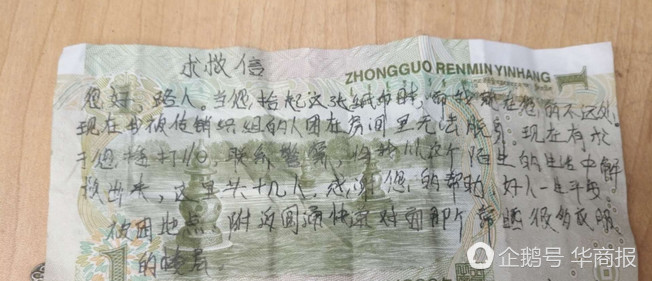 求救信
ZHONGGUO RENMIN YINHANG
您好,路人。当您拾起这张纸币时,而我就在您的不远处
现在我被传销组织的人困在房间里无法脱身。现在有求
于您拨打110,联系警察,将我从这个陌生的生活中解
救出来,这里共十几人,感谢您的帮助,好人一生平安
被困地点 附近圆通快递对面那个
的楼房
1
企鹅号 华商报